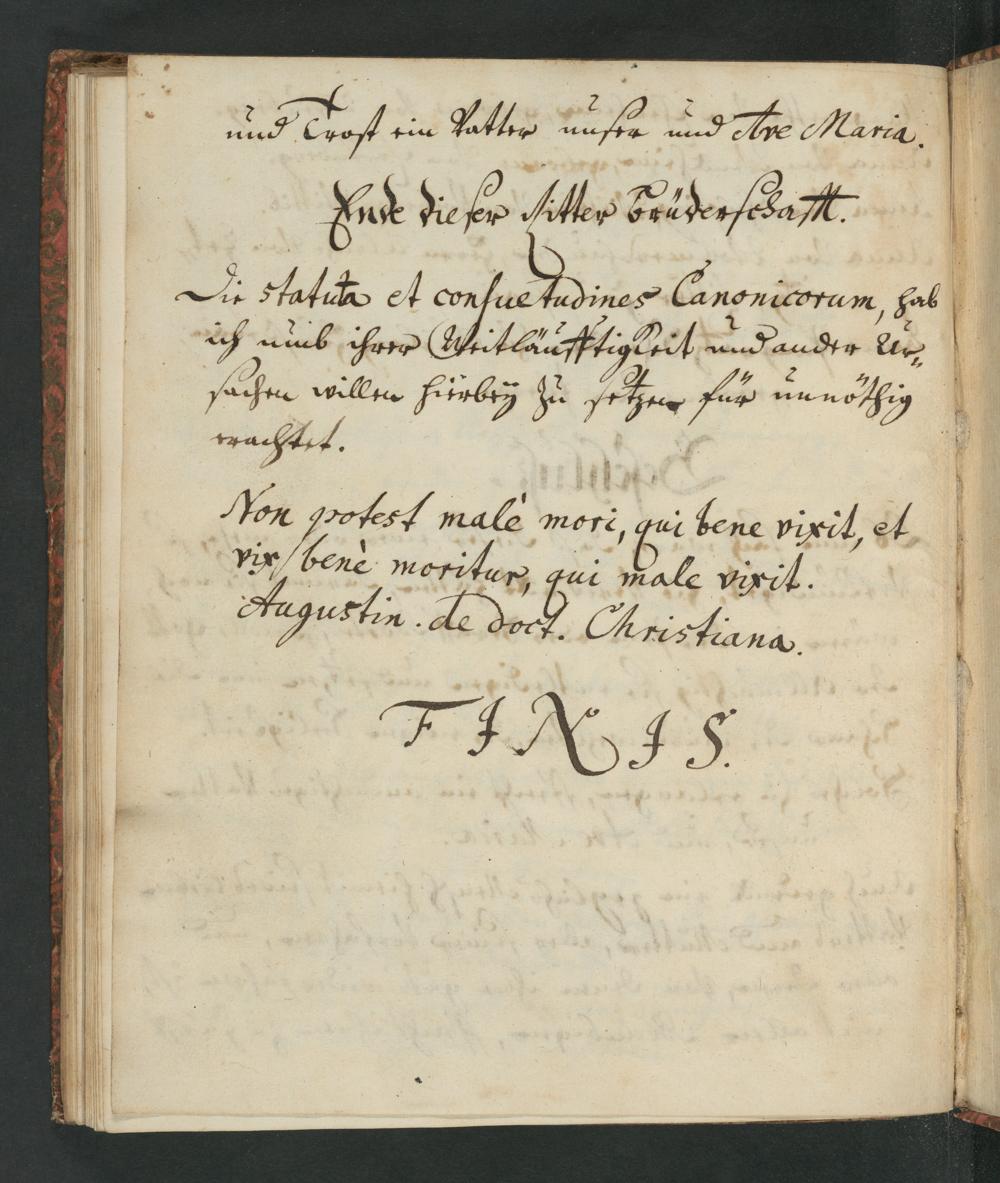 und Trost ein Vatter unser und Ave Maria.
Ende dieser Ritter Brüderschafft.
Die statuta et consuetudines Canonicorum, hab
ich umb ihrer Weitläufftigkeit und ander Ur=
sachen willen hierbeÿ zu setzen für unnöthig
erachtet.
Non potest malè mori, qui bene vixit, et
vix benè moritur, qui male vixit.
Augustin. de doct. Christiana.
FINIS.